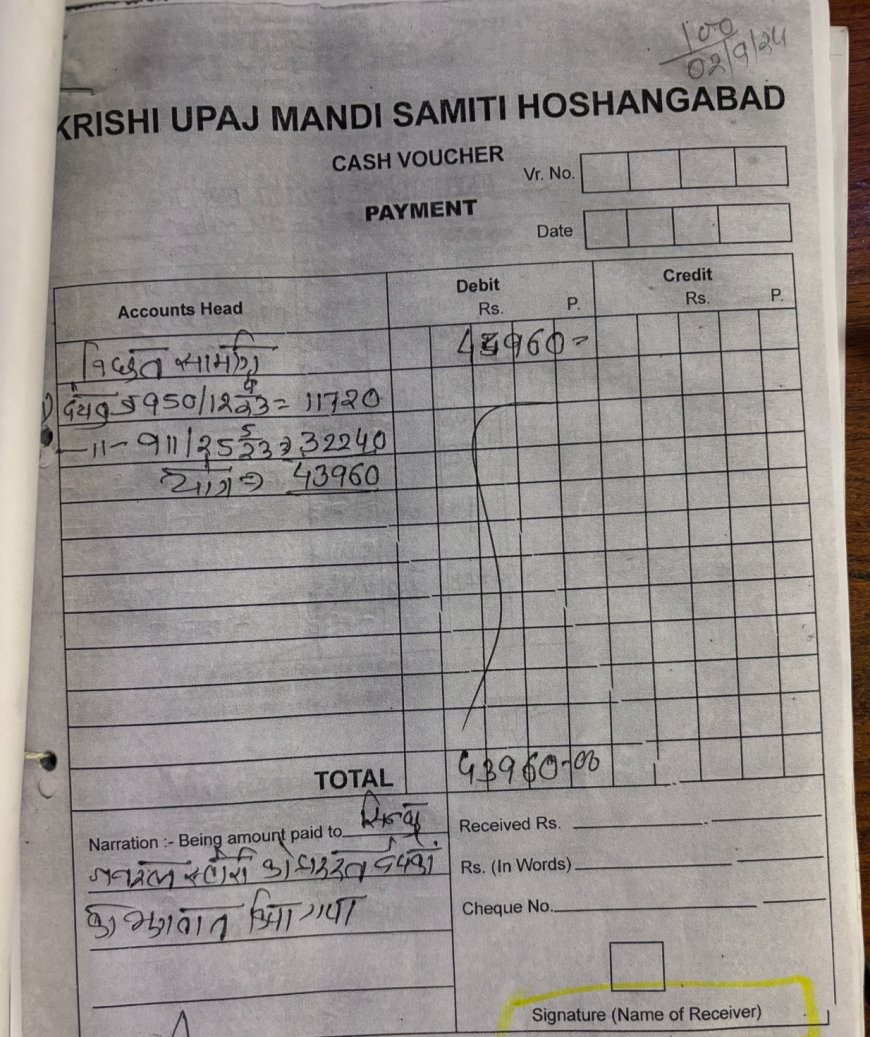 100
02/9/24
KRISHI UPAJ MANDI SAMITI HOSHANGABAD
CASH VOUCHER
Vr. No.
PAYMENT
Date
Accounts Head
Debit
Credit
Rs. P.
Rs. P.
विद्युत सामग्री
43960=
950/12 4/23 = 11720
-11- 911/25 5/23 = 32240
योग = 43960
TOTAL
43960-00
Narration :- Being amount paid to
जनरल स्टोर्स को
का भुगतान किया गया
Received Rs.
Rs. (In Words)
Cheque No.
Signature (Name of Receiver)